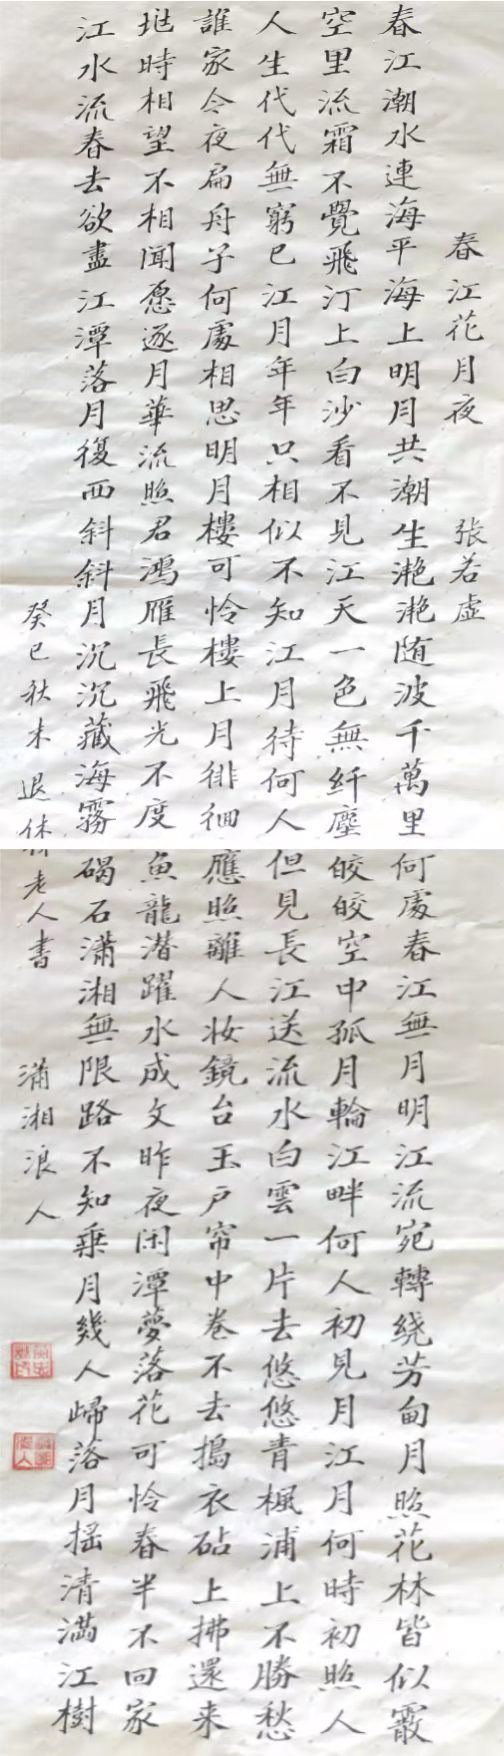 春江花月夜 張若虚
春江潮水連海平海上明月共潮生滟滟随波千萬里何處春江無月明江流宛轉绕芳甸月照花林皆似霰
空里流霜不覺飛汀上白沙看不見江天一色無纤塵皎皎空中孤月輪江畔何人初見月江月何時初照人
人生代代無窮已江月年年只相似不知江月待何人但見長江送流水白雲一片去悠悠青楓浦上不勝愁
誰家今夜扁舟子何處相思明月樓可怜樓上月徘徊應照離人妆鏡台玉户帘中卷不去搗衣砧上拂還来
此時相望不相聞愿逐月華流照君鴻雁長飛光不度魚龍潜躍水成文昨夜闲潭夢落花可怜春半不回家
江水流春去欲盡江潭落月復西斜斜月沉沉藏海霧碣石瀟湘無限路不知乘月幾人歸落月摇清满江樹
癸巳秋末退休老人書 瀟湘浪人